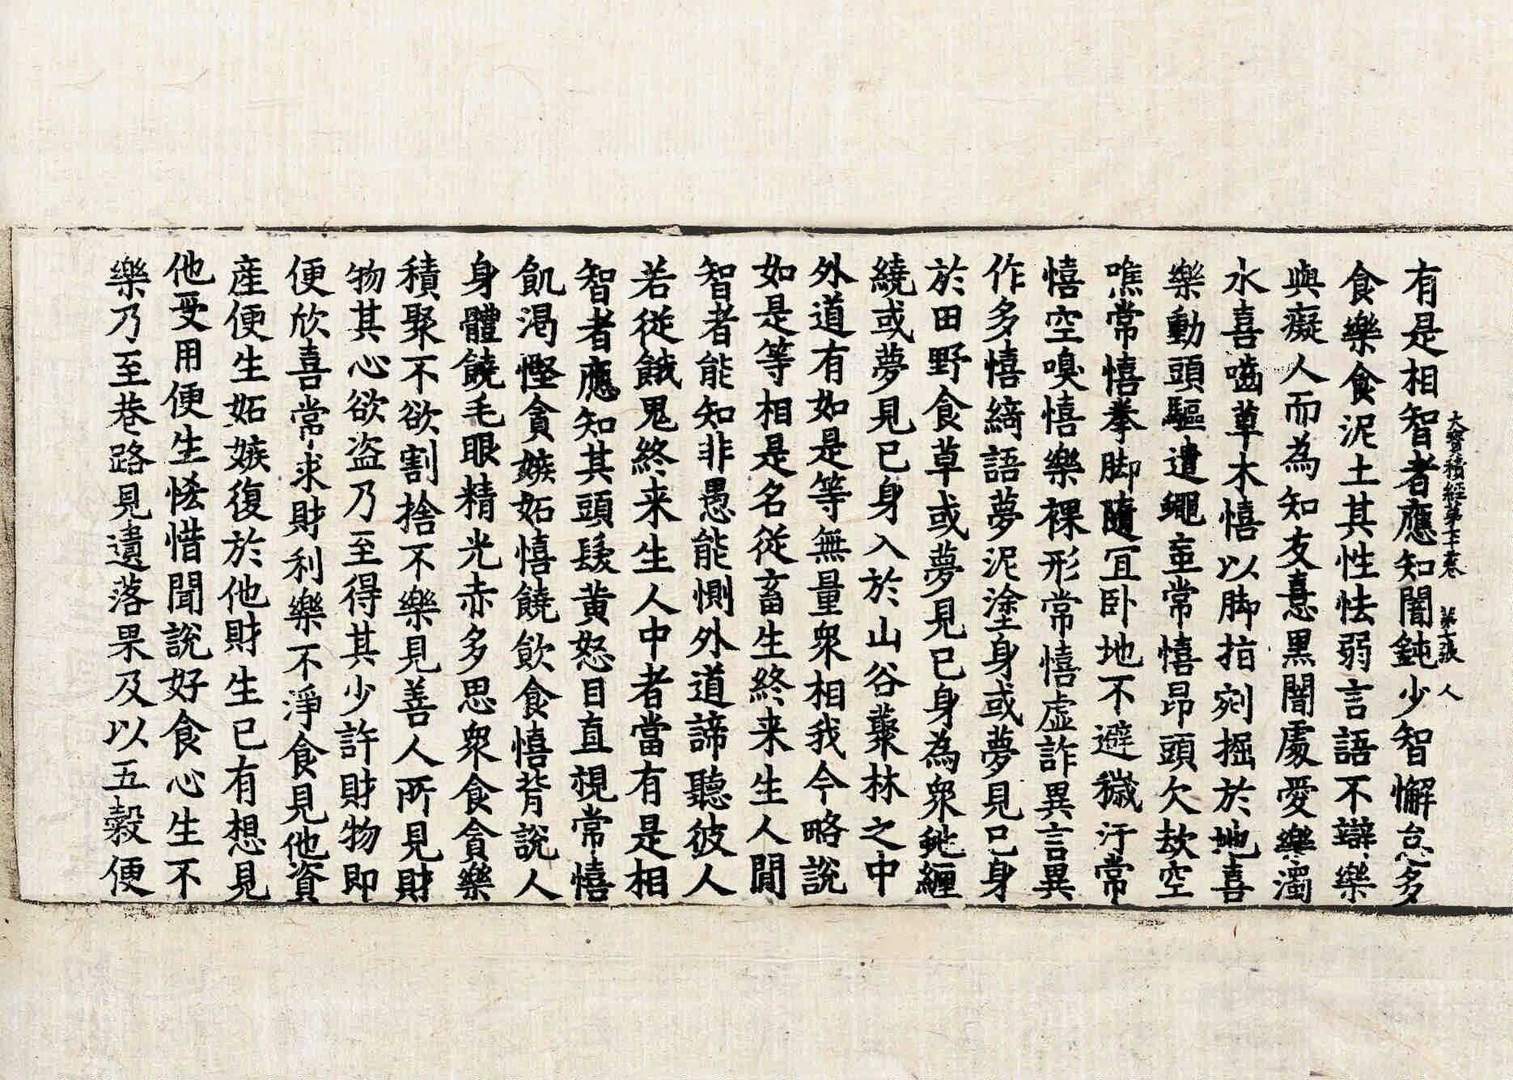 大寶積經第七十二卷　第七張　人
有是相智者應知闇鈍少智懈怠多
食樂食泥土其性怯弱言語不辯樂
與癡人而為知友憙黒闇處愛樂濁
水喜嚙草木憘以脚指剜掘於地喜
樂動頭驅遣蠅䖟常憘昂頭欠欬空
嚼常憘拳脚隨冝卧地不避穢汙常
憘空嗅憘樂裸形常憘虚詐異言異
作多憘綺語夢泥塗身或夢見己身
於田野食草或夢見己身為衆虵纏
繞或夢見己身入於山谷藂林之中
外道有如是等無量衆相我今略說
如是等相是名從畜生終来生人閒
智者能知非愚能惻外道諦聽彼人
若從餓鬼終来生人中者當有是相
智者應知其頭髮黄怒目直視常憘
飢渴慳貪嫉妬憘饒飲食憘背說人
身體饒毛眼精光赤多思衆食貪樂
積聚不欲割捨不樂見善人所見財
物其心欲盜乃至得其少許財物即
便欣喜常求財利樂不淨食見他資
産便生妬嫉復於他財生己有想見
他受用便生悋惜聞說好食心生不
樂乃至巷路見遺落果及以五穀便